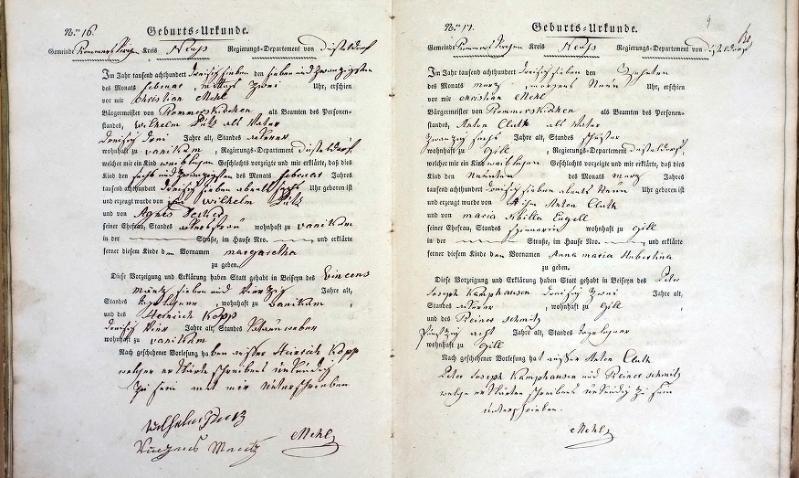 Nro. 16. Geburts-Urkunde.
Gemeinde Rommerskirchen Kreis Neuß Regierungs-Departement von Düsseldorf
Im Jahr tausend achthundert dreißig sieben den sieben und zwanzigsten
des Monats februar mittags zwei Uhr, erschien
vor mir Christian Mehl
Bürgermeister von Rommerskirchen als Beamten des Personen-
standes, Wilhelm als Vater
dreißig drei Jahre alt, Standes Ackerer
wohnhaft zu Vanikum, Regierungs-Departement Düsseldorf,
welcher mir ein Kind weiblichen Geschlechts vorzeigte und mir erklärte, daß dies
Kind den sechs und zwanzigsten des Monats februar Jahres
tausend achthundert dreißig sieben abends sechs Uhr geboren ist
und erzeugt wurde von ihm Wilhelm
und von Agnes
seiner Ehefrau, Standes wohnhaft zu Vanikum
in der Straße, im Hause Nro. und erklärte
ferner diesem Kinde den Vornamen margaretha
zu geben.
Diese Vorzeigung und Erklärung haben Statt gehabt in Beiseyn des Vincens
sieben und vierzig Jahre alt,
Standes Tagelöhner, wohnhaft zu Vanikum
und des Heinrich Kopp
dreißig vier Jahre alt, Standes
wohnhaft zu Vanikum
Nach geschehener Vorlesung haben außer Heinrich Kopp
welcher erklärte schreibens unkundig
zu sein mit mir unterschrieben
Wilhelm
Mehl
Nro. 17. Geburts-Urkunde.
Gemeinde Rommerskirchen Kreis Neuß Regierungs-Departement von Düsseldorf
Im Jahr tausend achthundert dreißig sieben den Zehnten
des Monats martz, morgens Neun Uhr, erschien
vor mir Christian Mehl
Bürgermeister von Rommerskirchen als Beamten des Personen-
standes, Anton Cluth als Vater
zwanzig sechs Jahre alt, Standes
wohnhaft zu Gill, Regierungs-Departement Düsseldorf,
welcher mir ein Kind weiblichen Geschlechts vorzeigte und mir erklärte, daß dies
Kind den Neunten des Monats martz Jahres
tausend achthundert dreißig sieben abends Neun Uhr geboren ist
und erzeugt wurde von ihm Anton Cluth
und von maria Sibilla Engell
seiner Ehefrau, Standes wohnhaft zu Gill
in der Straße, im Hause Nro. und erklärte
ferner diesem Kinde den Vornamen Anna maria Hubertina
zu geben.
Diese Vorzeigung und Erklärung haben Statt gehabt in Beiseyn des Peter
Joseph Kamphausen dreißig zwei Jahre alt,
Standes Ackerer, wohnhaft zu Gill
und des Reiner Schmitz
fünfzig acht Jahre alt, Standes Tagelöhner
wohnhaft zu Gill
Nach geschehener Vorlesung hat außer Anton Cluth
Peter Joseph Kamphausen und Reiner Schmitz
welche erklärten schreibens unkundig zu sein
unterschrieben.
Mehl